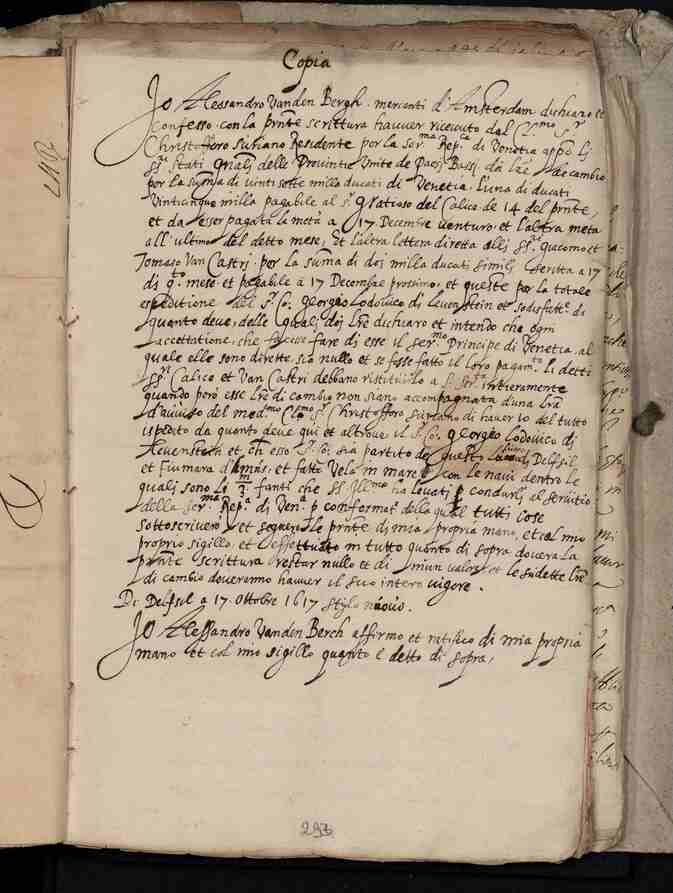 Copia
Io Alessandro Vanden Bergh. mercanti d'Amsterdam dichiaro et
Confesso con la prnte scrittura havver ricevuto dal Cl.mo Sr
Christofforo Suriano Residente per la Ser.ma Rep. di Venetia appo li
SSri Stati gnali delle Provintie Unite de Paesi Bassi, doi lre de cambio
per la summa di vinti sette milla ducati di Venetia. l'una di ducati
Vinticinque milla pagabile al sr gratioso del Calice de 14 del prnte,
et da esser pagata la metà a 17 Decembre venturo, et l'altra meta
all'ultimo del detto mese, et l'altra lettera diretta alli SSri giacomo et
Tomaso Van Castri per la summa di doi milla ducati simili scritta a 17
di qto mese et pagabile a 17 Decembre prossimo, et queste per la totale
espeditione del Sr Co. georgio Lodovico di Levenstein et sodisfatte di
quanto deve, delle quali doi lre dichiaro et intendo che ogni
accettatione, che facesse fare di esse il ser.mo Principe di Venetia, al
quale elle sono dirette, sia nullo et se fosse fatto il loro pagam.to li detti
SSri Calico et Van Castri debbano ristituirlo a S. Ser.tà intieramente
quando però esse lre di cambio non siano accompagnata d'una lra
d'avviso del med.mo Cl.mo Sr Christofforo Suriano di haver io del tutto
ispedito da quanto deve qui et altrove il Sr Co. georgio Lodovico di
Levenstein et ch esso Sr Co. sia partito da questo Delfsil
et Fiumara d'Amas, et fatto vela in mare con le navi dentro le
quali sono li m/3 fanti che SS. Ill.ma ha levati p condurli al servitio
della Ser.ma Rep.a di Ven. p conformatà della qual tutti cose
sottoscrivero et seguero le prnte di mia propria mano, et col mio
proprio sigillo, et effettuato in tutto quanto di sopra dovera la
prnte scrittura restar nullo et di niun valor, et le sudette lre
di cambio doveranno havver il suo intero vigore.
Di Delfsil a 17. Ottobre 1617 stylo nuovo.
Io Alessandro Vanden Berch affirmo et ratifico di mia propria
mano et col mio sigillo quanto e detto di sopra,
293